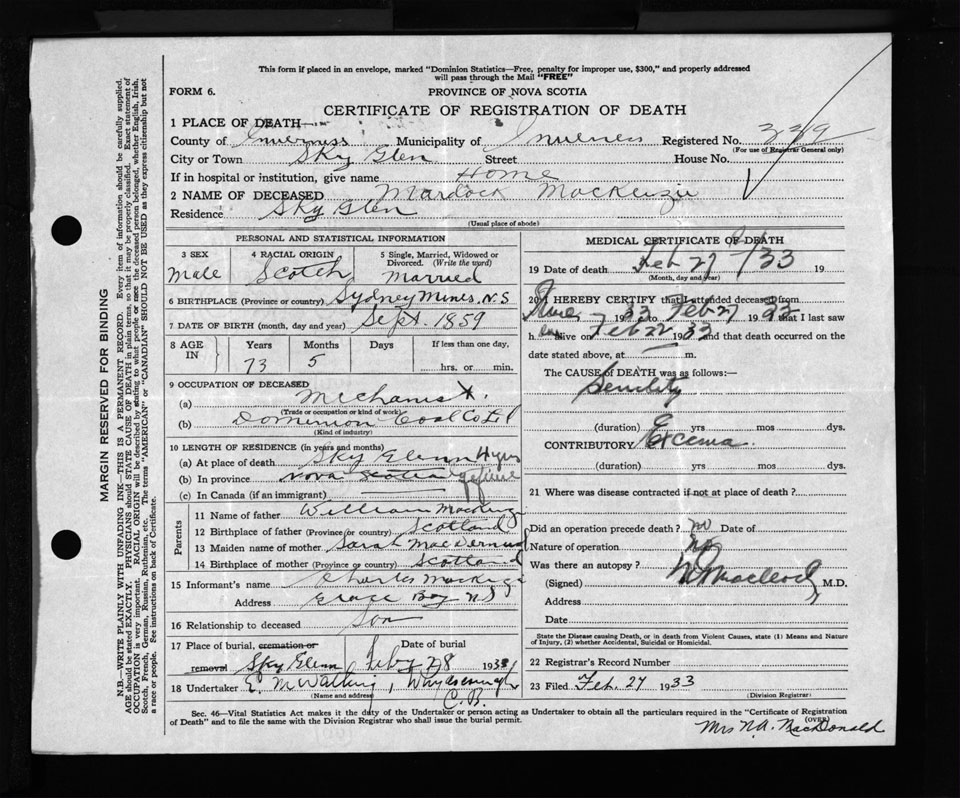 This form if placed in an envelope, marked "Dominion Statistics—Free, penalty for improper use, $300," and properly addressed
will pass through the Mail "FREE"
FORM 6.
PROVINCE OF NOVA SCOTIA
CERTIFICATE OF REGISTRATION OF DEATH
1 PLACE OF DEATH—
County of Inverness Municipality of Inverness Registered No. 339
(For use of Registrar General only)
City or Town Sky Glen Street House No.
If in hospital or institution, give name Home
2 NAME OF DECEASED Murdock MacKenzie
Residence Sky Glen
(Usual place of abode)
PERSONAL AND STATISTICAL INFORMATION
3 SEX 4 RACIAL ORIGIN 5 Single, Married, Widowed or
Divorced. (Write the word)
Male Scotch Married
6 BIRTHPLACE (Province or country) Sydney Mines, N.S
7 DATE OF BIRTH (month, day and year) Sept. 1859
8 AGE IN Years Months Days If less than one day,
73 5 hrs. or min.
9 OCCUPATION OF DECEASED
(a) Mechanist
(Trade or occupation or kind of work)
(b) Dominion Coal Co Ltd
(Kind of industry)
10 LENGTH OF RESIDENCE (in years and months)
(a) At place of death Sky Glenn
(b) In province Nova Scotia
(c) In Canada (if an immigrant)
Parents
11 Name of father William MacKenzie
12 Birthplace of father (Province or country) Scotland
13 Maiden name of mother Sarah
14 Birthplace of mother (Province or country) Scotland
15 Informant's name Charles MacKenzie
Address Glace Bay N.S
16 Relationship to deceased Son
17 Place of burial, cremation or Date of burial
removal Sky Glenn Feby 28 1933
18 Undertaker
(Name and address)
C.B.
MEDICAL CERTIFICATE OF DEATH
19 Date of death Feb 27/33 19
(Month, day and year)
20 I HEREBY CERTIFY that I attended deceased from
19 33 Feb 27 19 33 that I last saw
h alive on Feb 22 1933 and that death occurred on the
date stated above, at m.
The CAUSE of DEATH was as follows:—
Senility
(duration) yrs mos dys.
CONTRIBUTORY Excema.
(duration) yrs mos dys.
21 Where was disease contracted if not at place of death?
Did an operation precede death? no Date of
Nature of operation no
Was there an autopsy?
(Signed) Macleod M.D.
Address
Date
State the Disease causing Death, or in death from Violent Causes, state (1) Means and Nature
of Injury, (2) whether Accidental, Suicidal or Homicidal.
22 Registrar's Record Number
23 Filed Feb. 27 1933
(Division Registrar)
Sec. 46—Vital Statistics Act makes it the duty of the Undertaker or person acting as Undertaker to obtain all the particulars required in the "Certificate of Registration
of Death" and to file the same with the Division Registrar who shall issue the burial permit.
(OVER)
Mrs N.A. MacDonald
MARGIN RESERVED FOR BINDING
N.B.—WRITE PLAINLY WITH UNFADING INK—THIS IS A PERMANENT RECORD. Every item of information should be carefully supplied.
AGE should be stated EXACTLY. PHYSICIANS should STATE CAUSE OF DEATH in plain terms so that it may be properly classified. Exact statement of
OCCUPATION is very important. RACIAL ORIGIN will be described by stating to what people or race the deceased person belonged, whether English, Irish,
Scotch, French, German, Russian, Ruthenian, etc. The terms "AMERICAN" or "CANADIAN" SHOULD NOT BE USED as they express citizenship but not
a race or people. See instructions on back of Certificate.